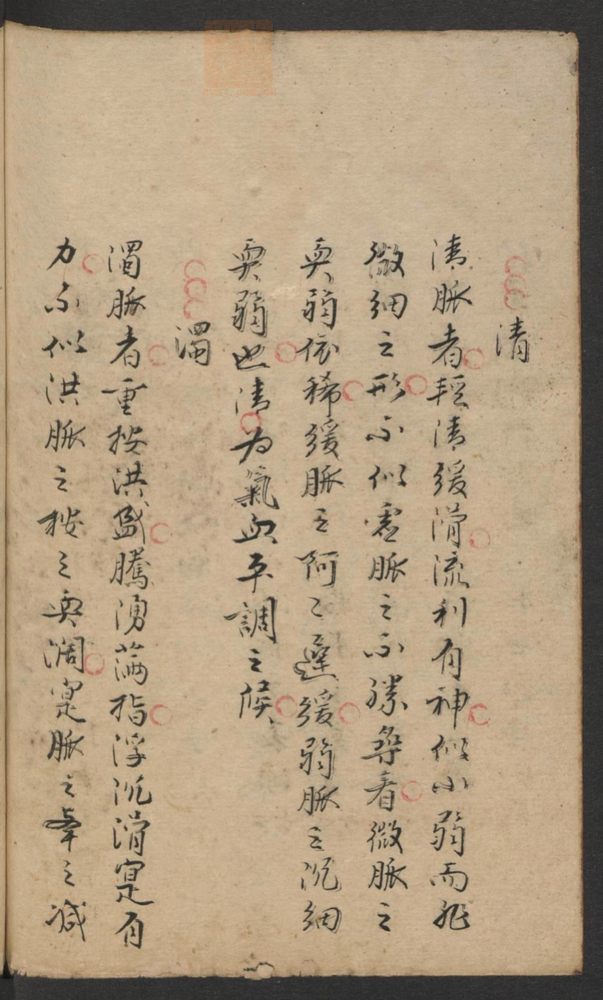 清
清脈者輕清緩滑流利有神似小弱而非
微細之形不似虛脈之不勝尋看微脈之
耎弱依稀緩脈之阿〻遲緩弱脈之沉細
耎弱也清为氣血平調之候
濁
濁脈者重按洪盛騰湧滿指浮沉滑寔有
力不似洪脈之按之耎濶寔脈之舉之减